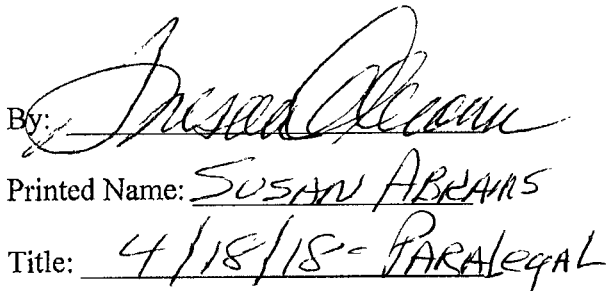 By: Susan Abrams
Printed Name: SUSAN ABRAMS
Title: 4/18/18 - PARALEGAL